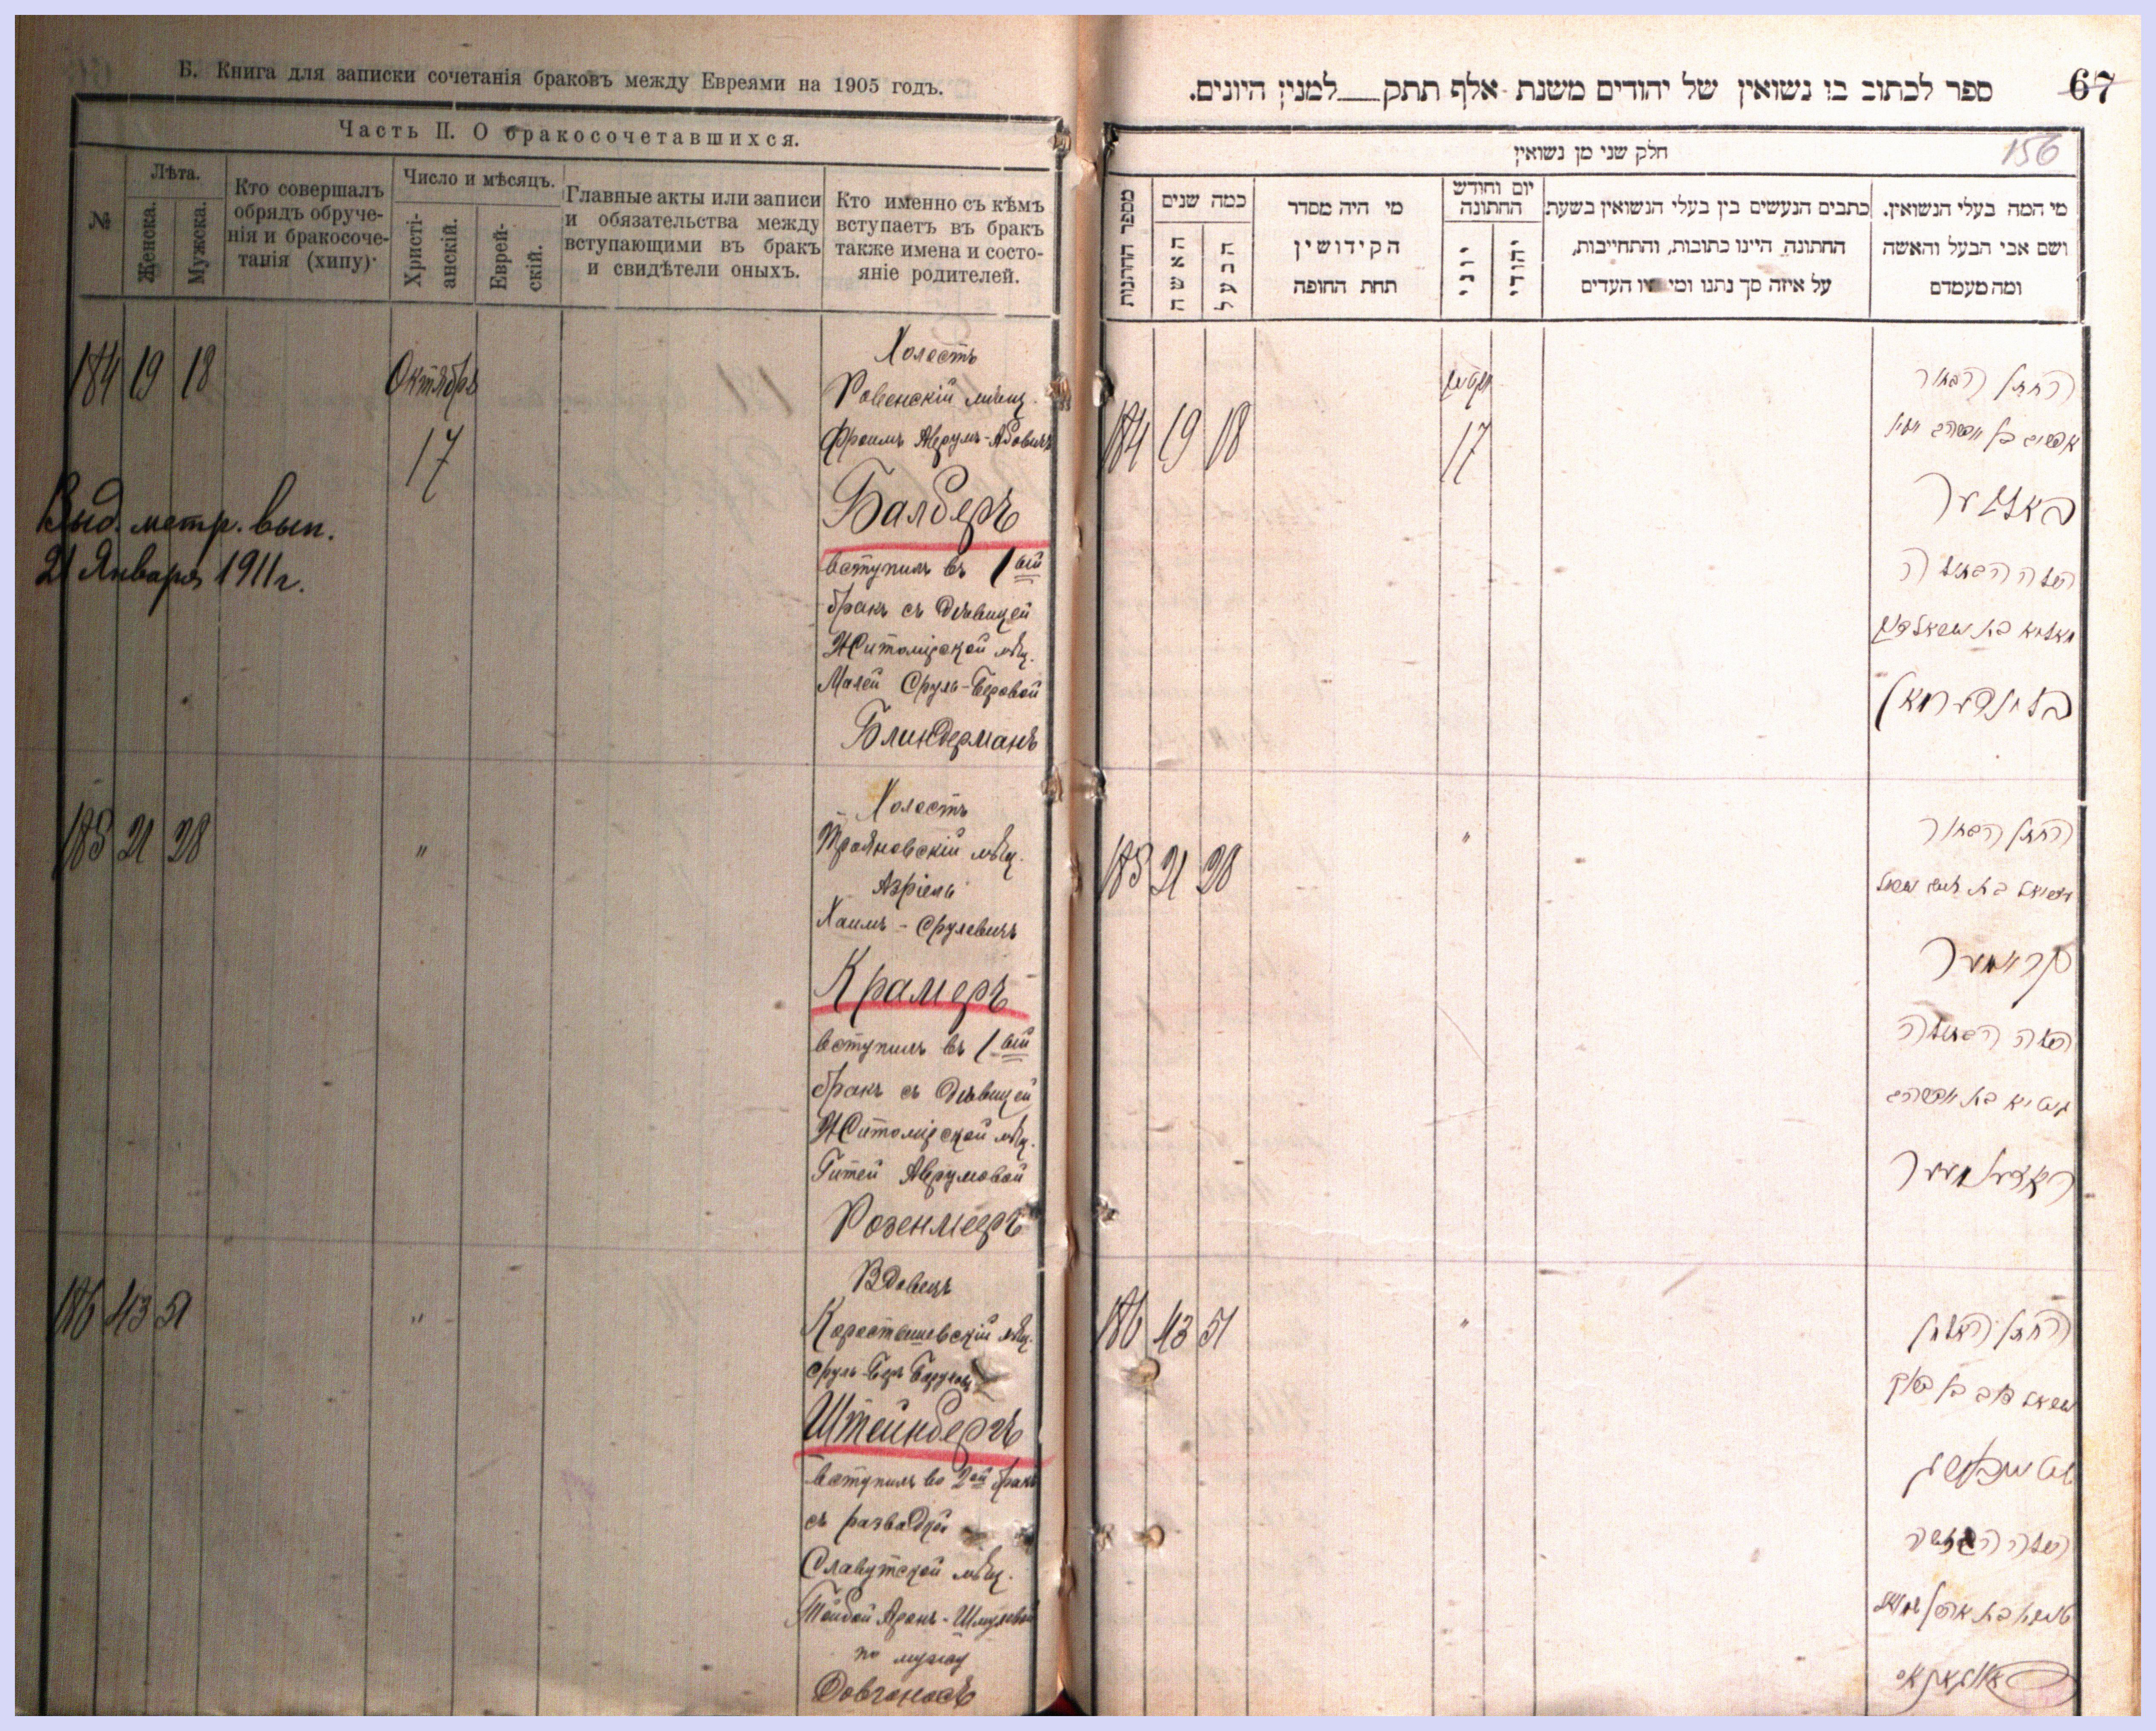 Б. Книга для записки сочетанія браковъ между Евреями на 1905 годъ.
Часть II. О бракосочетавшихся.
№
Лѣта.
Женска.
Мужска.
Кто совершалъ
обрядъ обруче-
нія и бракосоче-
танія (хипу)·
Число и мѣсяцъ.
Христі-
анскій.
Еврей-
скій.
Главные акты или записи
и обязательства между
вступающими въ бракъ
и свидѣтели оныхъ.
Кто именно съ кѣмъ
вступаетъ въ бракъ
также имена и состо-
яніе родителей.
184 19 18
Октября
17
Выд. метр. вып.
21 Января 1911 г.
Холостъ
Ровенскій мѣщ.
Фроимъ Аврумъ-Абовичъ
Балберъ
вступилъ въ 1ый
бракъ съ дѣвицей
Житомірской мѣщ.
Малей Сруль-Беровой
Блиндерманъ
185 21 28
"
Холостъ
Трояновскій мѣщ.
Азріель
Хаимъ-Срулевичъ
Крамеръ
вступилъ въ 1ый
бракъ съ дѣвицей
Житомірской мѣщ.
Гитей Аврумовой
Розенмееръ
186 43 51
"
Вдовецъ
Коростышевскій мѣщ.
Сруль-Беръ
Штейнбергъ
вступилъ во 2ой бракъ
съ разводкой
Славутской мѣщ.
Тойбой Аронъ-Шмулевой
по мужу
Довгоносъ
ספר לכתוב בו נשואין של יהודים משנת אלף תתק___למנין היונים.
67
156
חלק שני מן נשואין
מספר החתונות
כמה שנים
האשה
הבעל
מי היה מסדר
הקידושין
תחת החופה
יום וחודש
החתונה
יוני
יהודי
כתבים הנעשים בין בעלי הנשואין בשעת
החתונה, היינו כתובות, והתחייבות,
על איזה סך נתנו ומי
העדים
מי המה בעלי הנשואין.
ושם אבי הבעל והאשה
ומה מעמדם
184 19 18
17
החתן הבחור
באלבער
הכלה הבתולה
בלינדערמאן
185 21 28
"
החתן הבחור
קראמער
הכלה הבתולה
גיטיא בת אברהם
ראזענמעער
186 43 51
"
החתן האלמן
ישראל בער בן ברוך
שטיינבערג
הכלה הגרושה